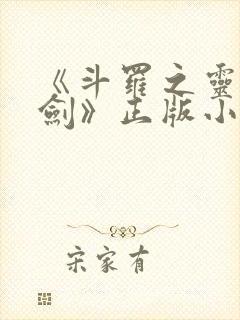 《斗羅之靈
劍》正版小
宋家有